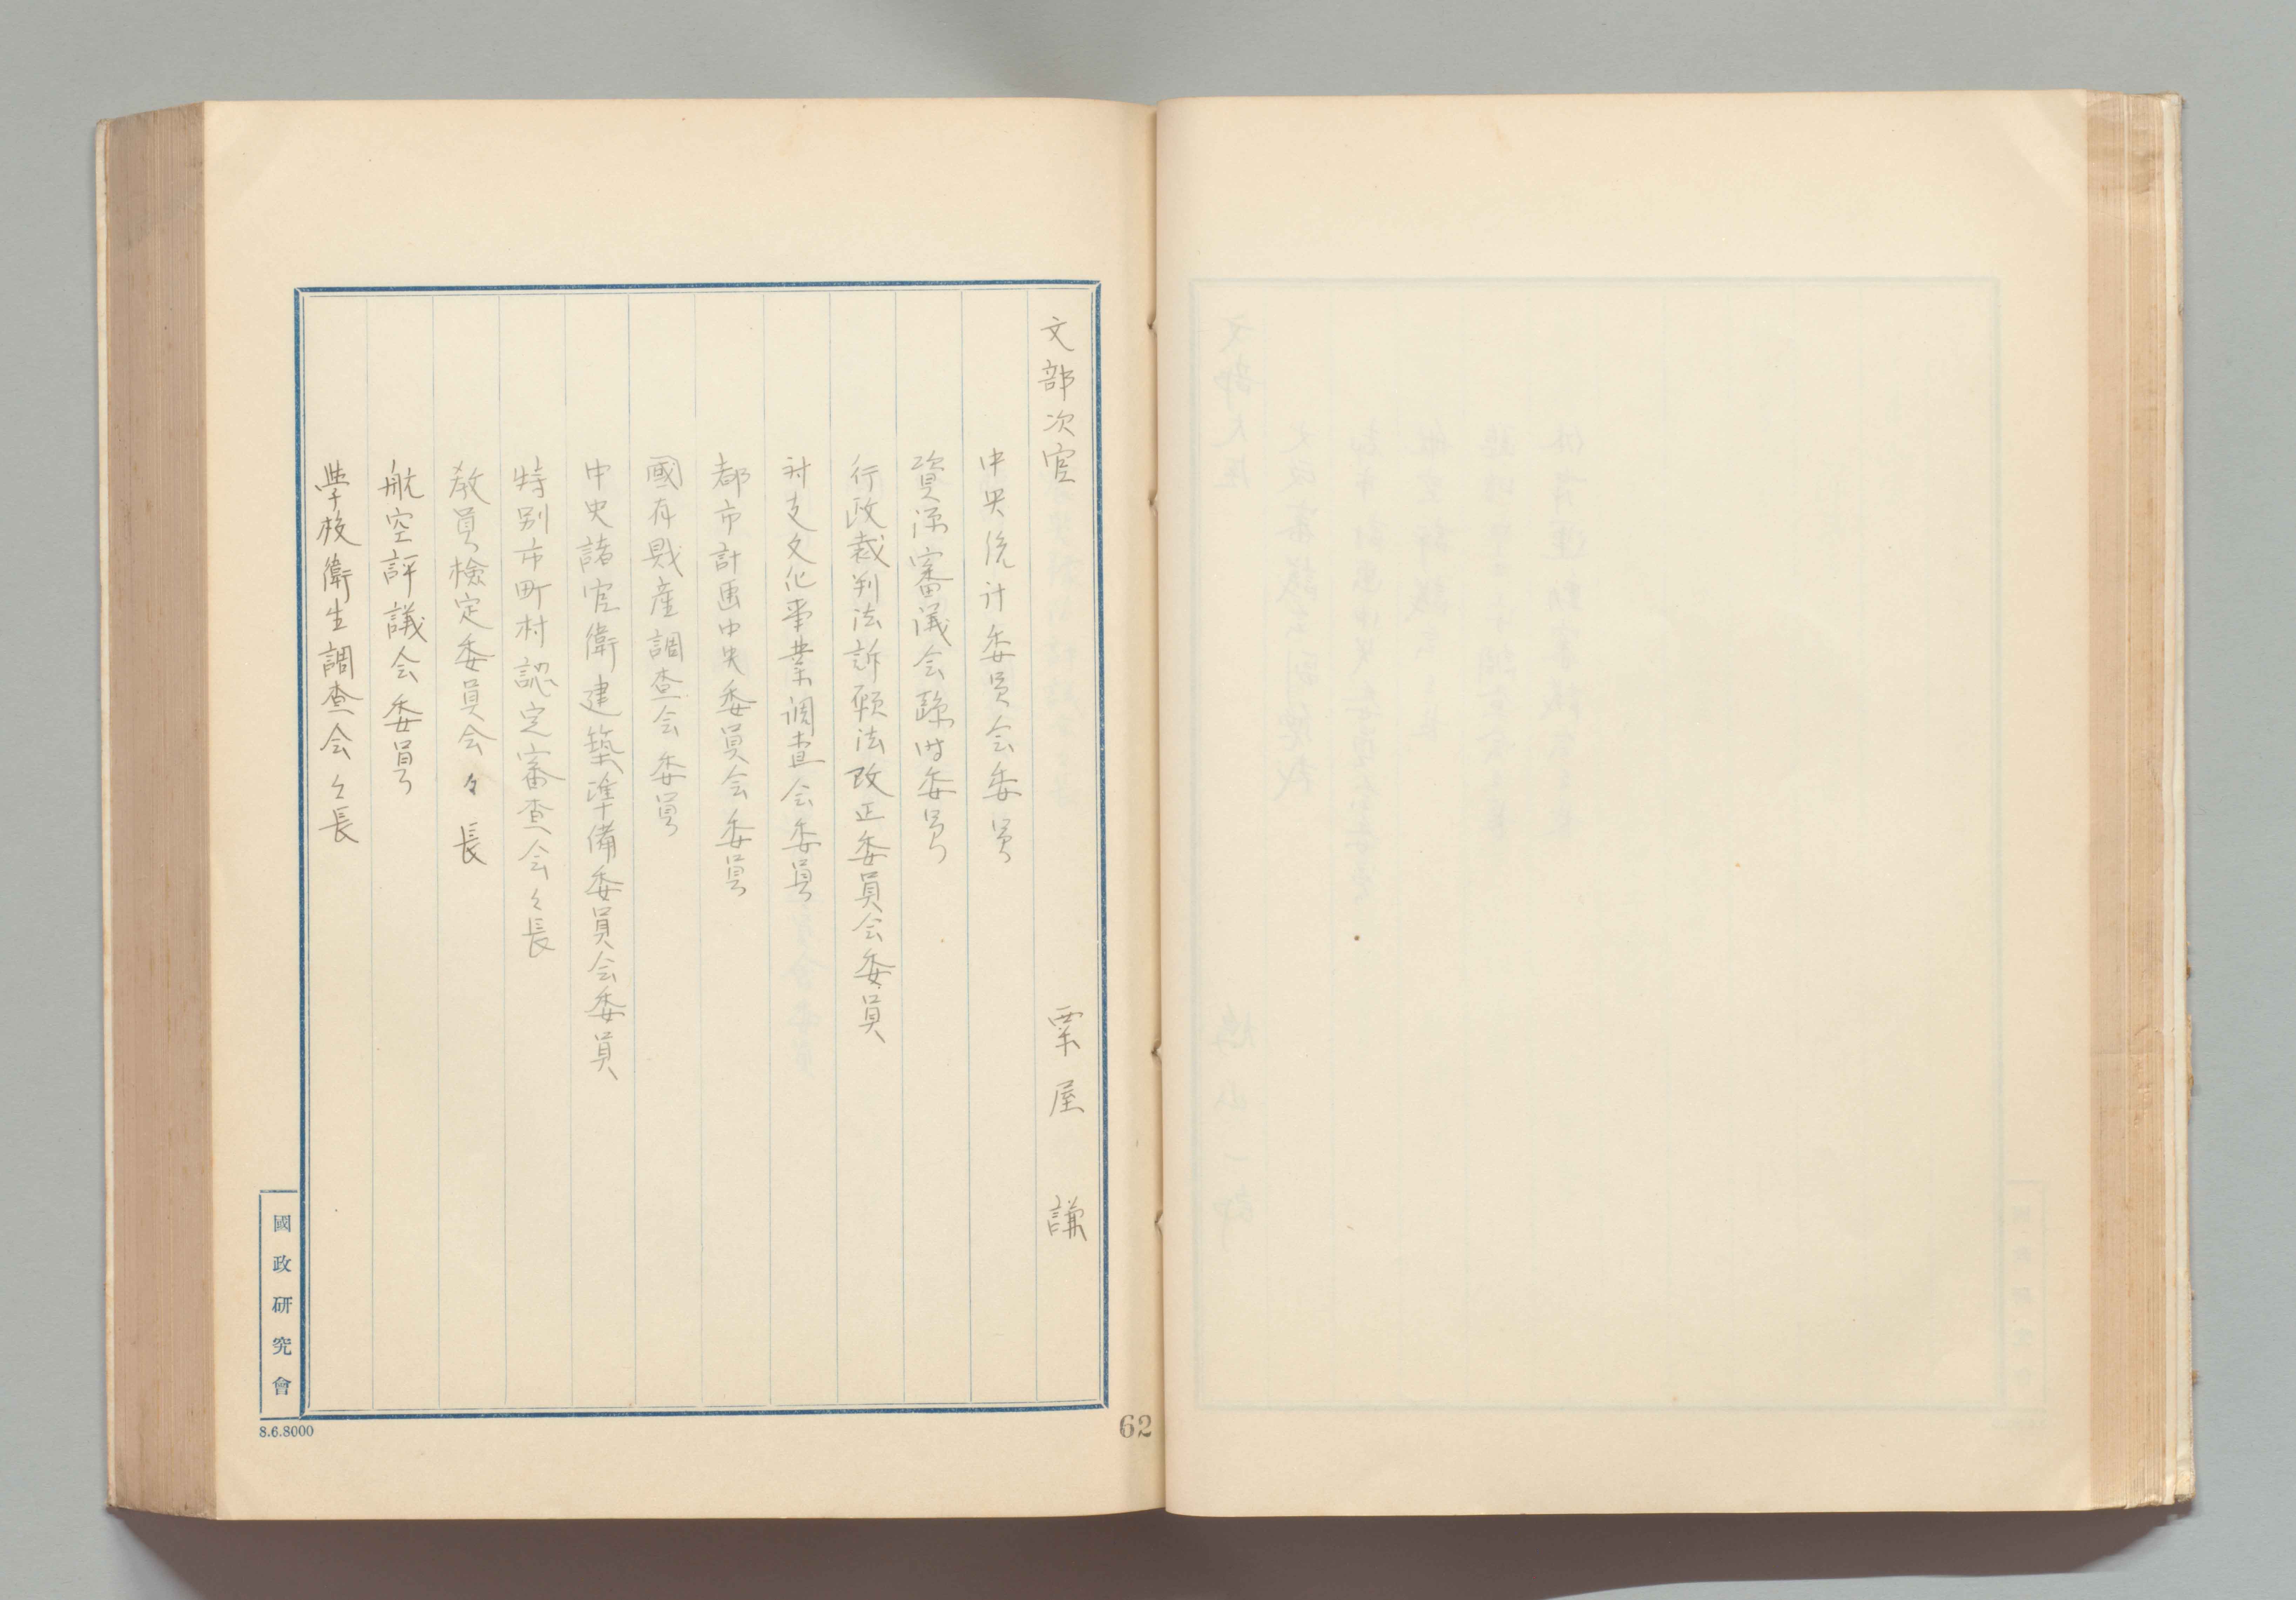 文部次官　粟屋謙
中央統計委員会委員
資源審議会臨時委員
行政裁判法訴願法改正委員会委員
対支文化事業調査会委員
都市計画中央委員会委員
國有財産調査会委員
中央諸官衙建築準備委員会委員
特別市町村認定審査会々長
教員檢定委員会々長
航空評議会委員
學校衛生調査会々長
國政研究會
8.6.8000
62